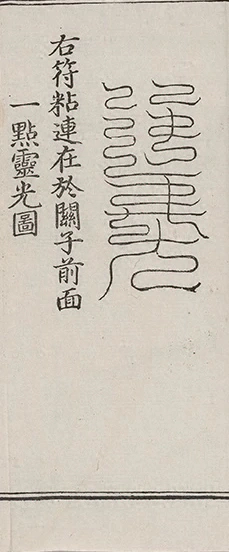 右符粘連在於關子前面
一點靈光圖